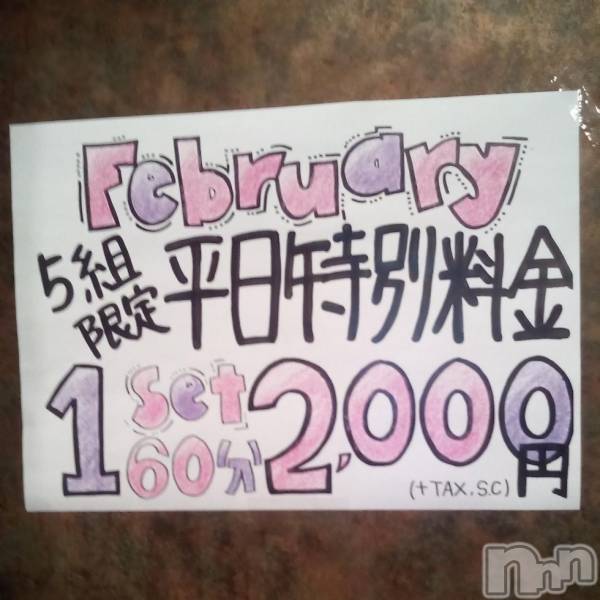 February
5組
限定
平日特別料金
1 Set 60分 2,000円
(+TAX.S.C)
nnn